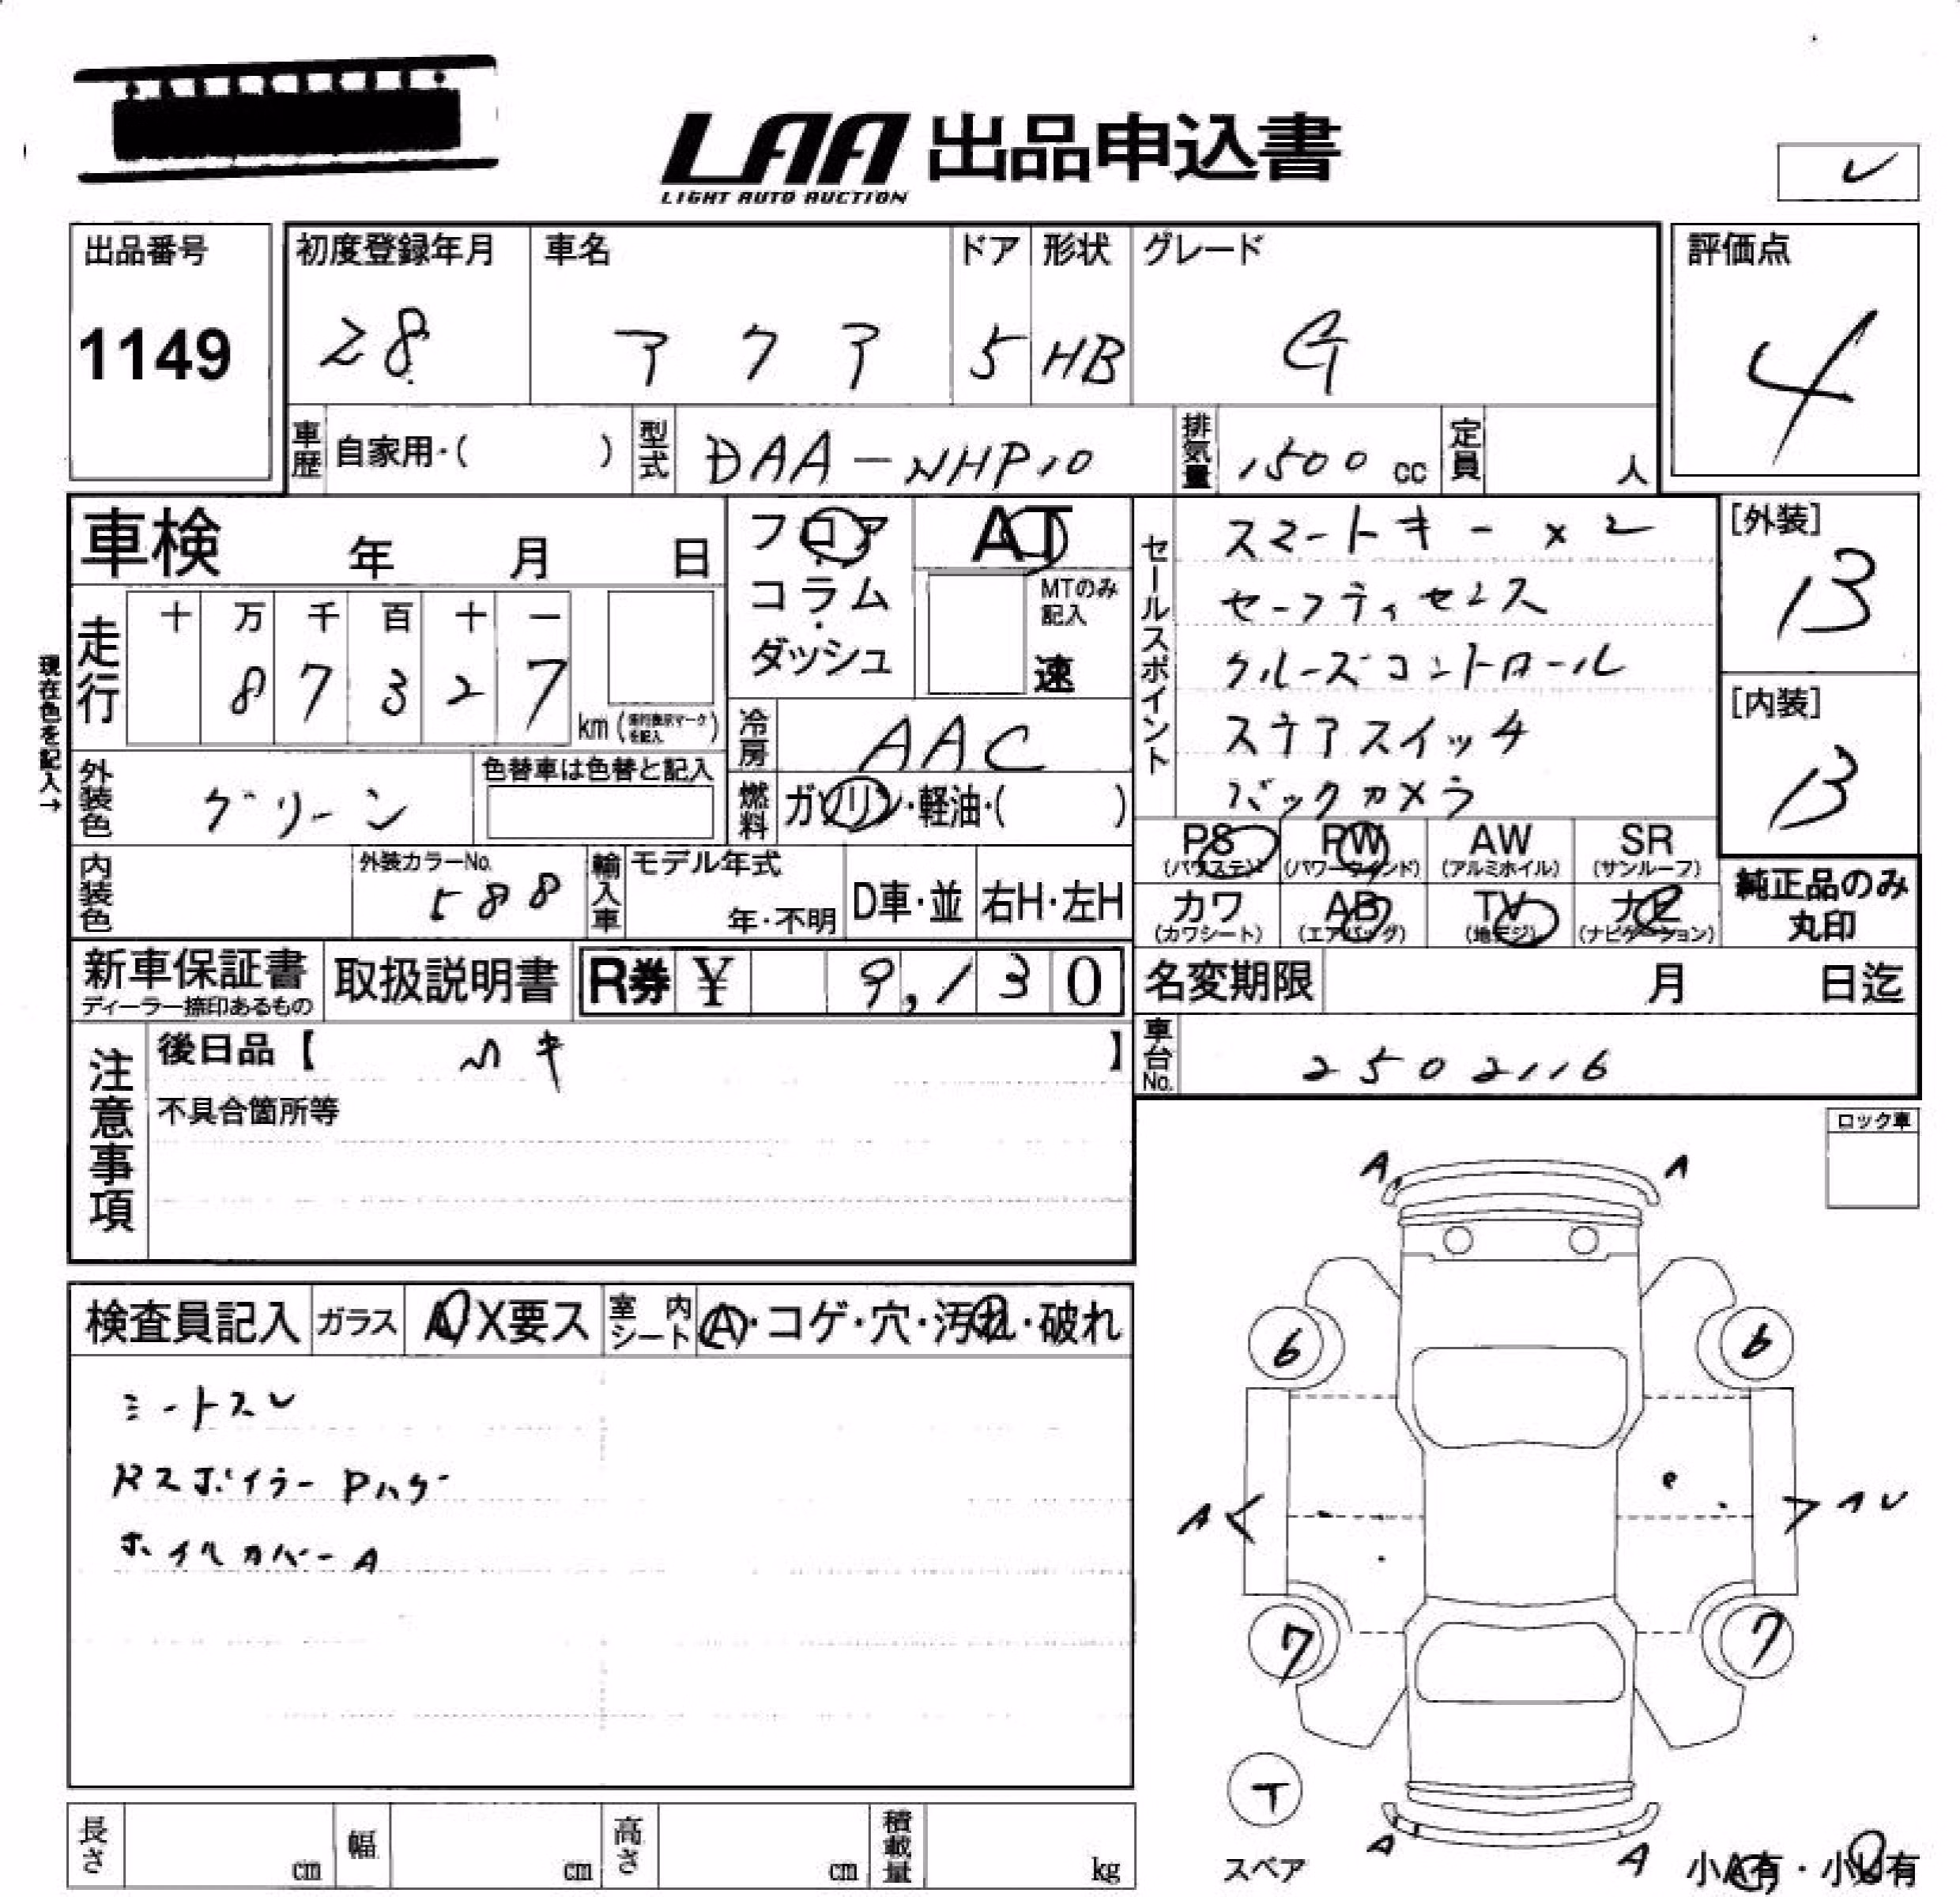 LAA 出品申込書
LIGHT AUTO AUCTION
レ
出品番号
1149
初度登録年月
28
車名
アクア
ドア
5
形状
HB
グレード
G
評価点
4
車歴 自家用・( )
型式 DAA-NHP10
排気量 1500 cc
定員 人
車検 年 月 日
フロア
・
コラム
・
ダッシュ
AT
MTのみ
記入
速
セールスポイント
スマートキー×2
セーフティセンス
クルーズコントロール
ステアスイッチ
バックカメラ
[外装]
B
[内装]
B
現在色を記入→
走行
十 万 千 百 十 一
8 7 3 2 7
km(走行表示マークを記入)
冷房 AAC
外装色 グリーン
色替車は色替と記入
燃料 ガソリン・軽油・( )
PS PW AW SR
(パワステ) (パワーウインド) (アルミホイル) (サンルーフ)
カワ AB TV ナビ
(カワシート) (エアバッグ) (地デジ) (ナビゲーション)
純正品のみ
丸印
内装色
外装カラーNo.
588
輸入車
モデル年式
年・不明
D車・並
右H・左H
新車保証書
ディーラー捺印あるもの
取扱説明書
R券 ¥ 9,130
名変期限 月 日迄
注意事項
後日品【 】
不具合箇所等
車台No. 2502116
ロック車
検査員記入
ガラス A X要ス
室内シート A・コゲ・穴・汚れ・破れ
シートスレ
Rスポイラー Pハゲ
ホイルカバーA
A A
6 6
A A
7 7
T
スペア
A A
小A有・小U有
長さ cm
幅 cm
高さ cm
積載量 kg